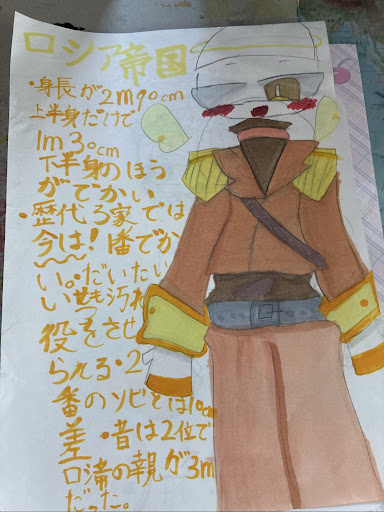 ロシア帝国
・身長が2m90cm
上半身だけで
1m30cm
下半身のほう
がでかい
・歴代ろ家では
今は!番でか
い。だいたい
い
役をさせ
られる・2
番のソビとは10cm
差・昔は2位で
ロ帝の親が3m
だった。